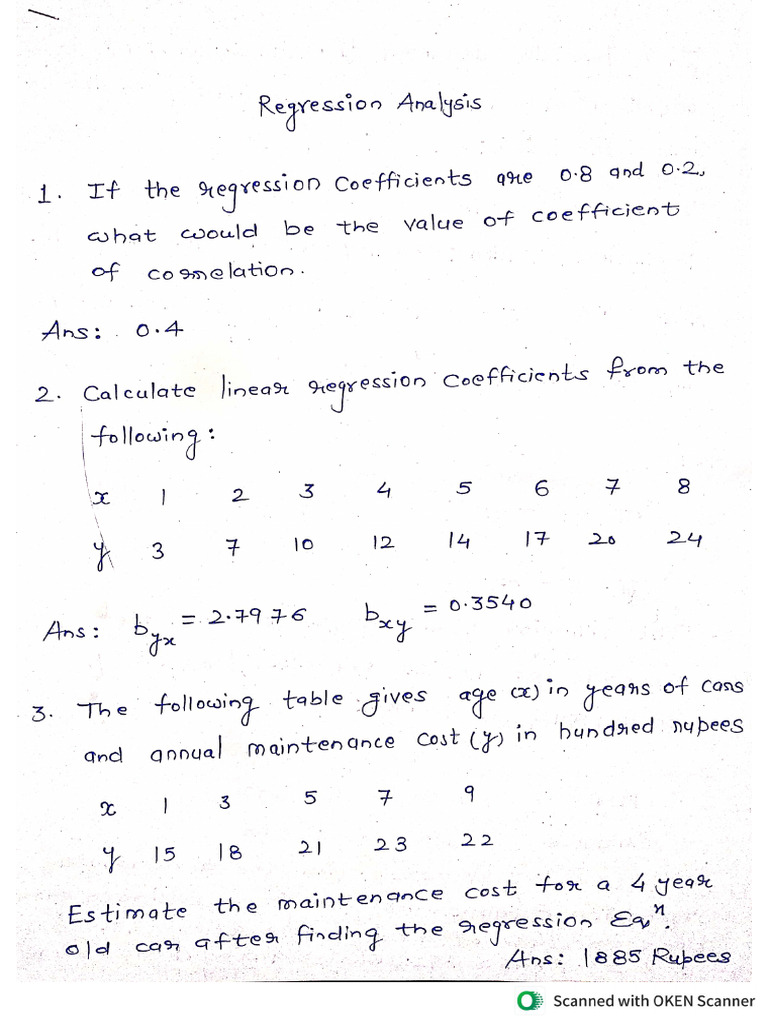 Regression Analysis
1. If the regression coefficients are 0.8 and 0.2,
what would be the value of coefficient
of correlation.
Ans: 0.4
2. Calculate linear regression coefficients from the
following:
x 1 2 3 4 5 6 7 8
y 3 7 10 12 14 17 20 24
Ans: byx = 2.7976 bxy = 0.3540
3. The following table gives age (x) in years of cars
and annual maintenance cost (y) in hundred rupees
x 1 3 5 7 9
y 15 18 21 23 22
Estimate the maintenance cost for a 4 year
old car after finding the regression Eqⁿ.
Ans: 1885 Rupees
Scanned with OKEN Scanner